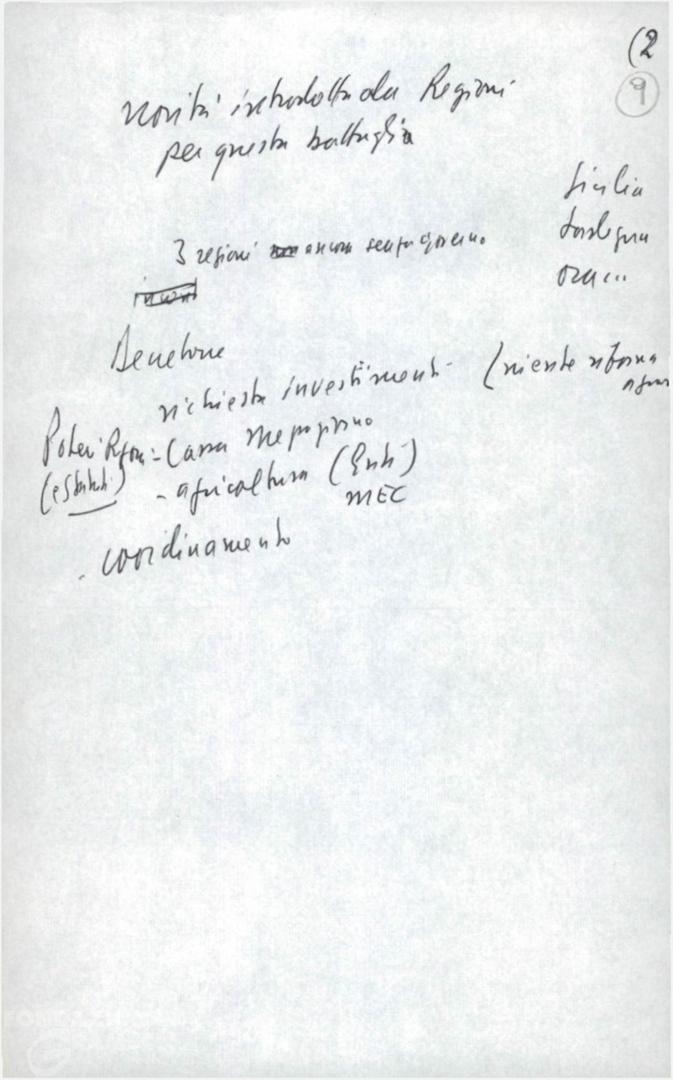 (2
9
novità introdotta da Regioni
per questa battaglia
Sicilia
Sardegna
ora...
3 regioni ancora senza governo
Benetone
richiesta investimenti (niente riforma
agrar
Poteri Regioni - Cassa Mezzogiorno
(e Statuti) - agricoltura (Enti)
MEC
- coordinamento